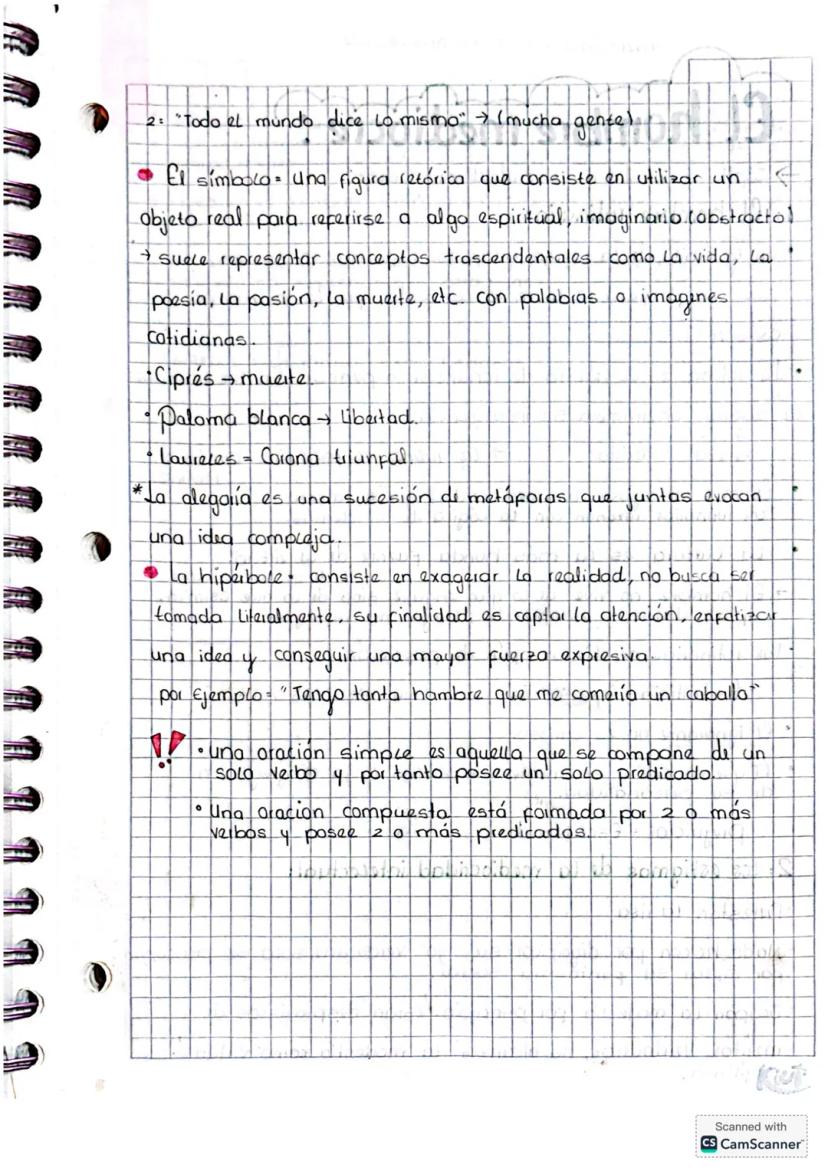 2: "Todo el mundo dice lo mismo" → (mucha gente)
El símbolo = una figura retórica que consiste en utilizar un
objeto real para referirse a algo espiritual, imaginario (abstracto)
→ suele representar conceptos trascendentales como la vida, la
poesía, la pasión, la muerte, etc. con palabras o imagenes
cotidianas.
• Ciprés → muerte.
• Paloma blanca → Libertad.
• Laureles = Corona triunfal.
* La alegoría es una sucesión de metáforas que juntas evocan
una idea compleja.
La hipérbole: consiste en exagerar la realidad, no busca ser
tomada literalmente, su finalidad es captar la atención, enfatizar
una idea y conseguir una mayor fuerza expresiva.
por Ejemplo = "Tengo tanta hambre que me comería un caballo"
!! • una oración simple es aquella que se compone de un
solo verbo y por tanto posee un solo predicado.
• Una oración compuesta está formada por 2 o más
verbos y posee 2 o más predicados.
Scanned with
CS CamScanner